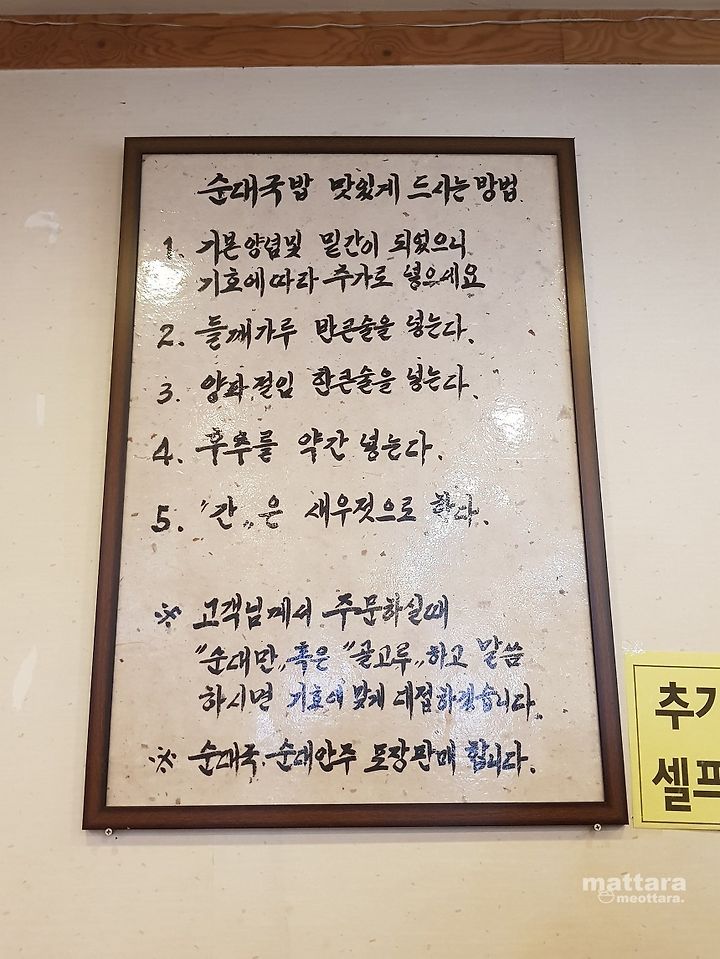 순대국밥 맛있게 드시는방법
1. 기본양념및 밑간이 되었으니
기호에따라 추가로 넣으세요
2. 들깨가루 반큰술을 넣는다.
3. 양파절임 한큰술을 넣는다.
4. 후추를 약간 넣는다.
5. "간"은 새우젓으로 한다.
※ 고객님께서 주문하실때
"순대만" 혹은 "골고루"하고 말씀
하시면 기호에 맞게 대접하겠습니다.
※ 순대국.순대안주 포장판매 합니다.
추가
셀프
mattara
meottara.